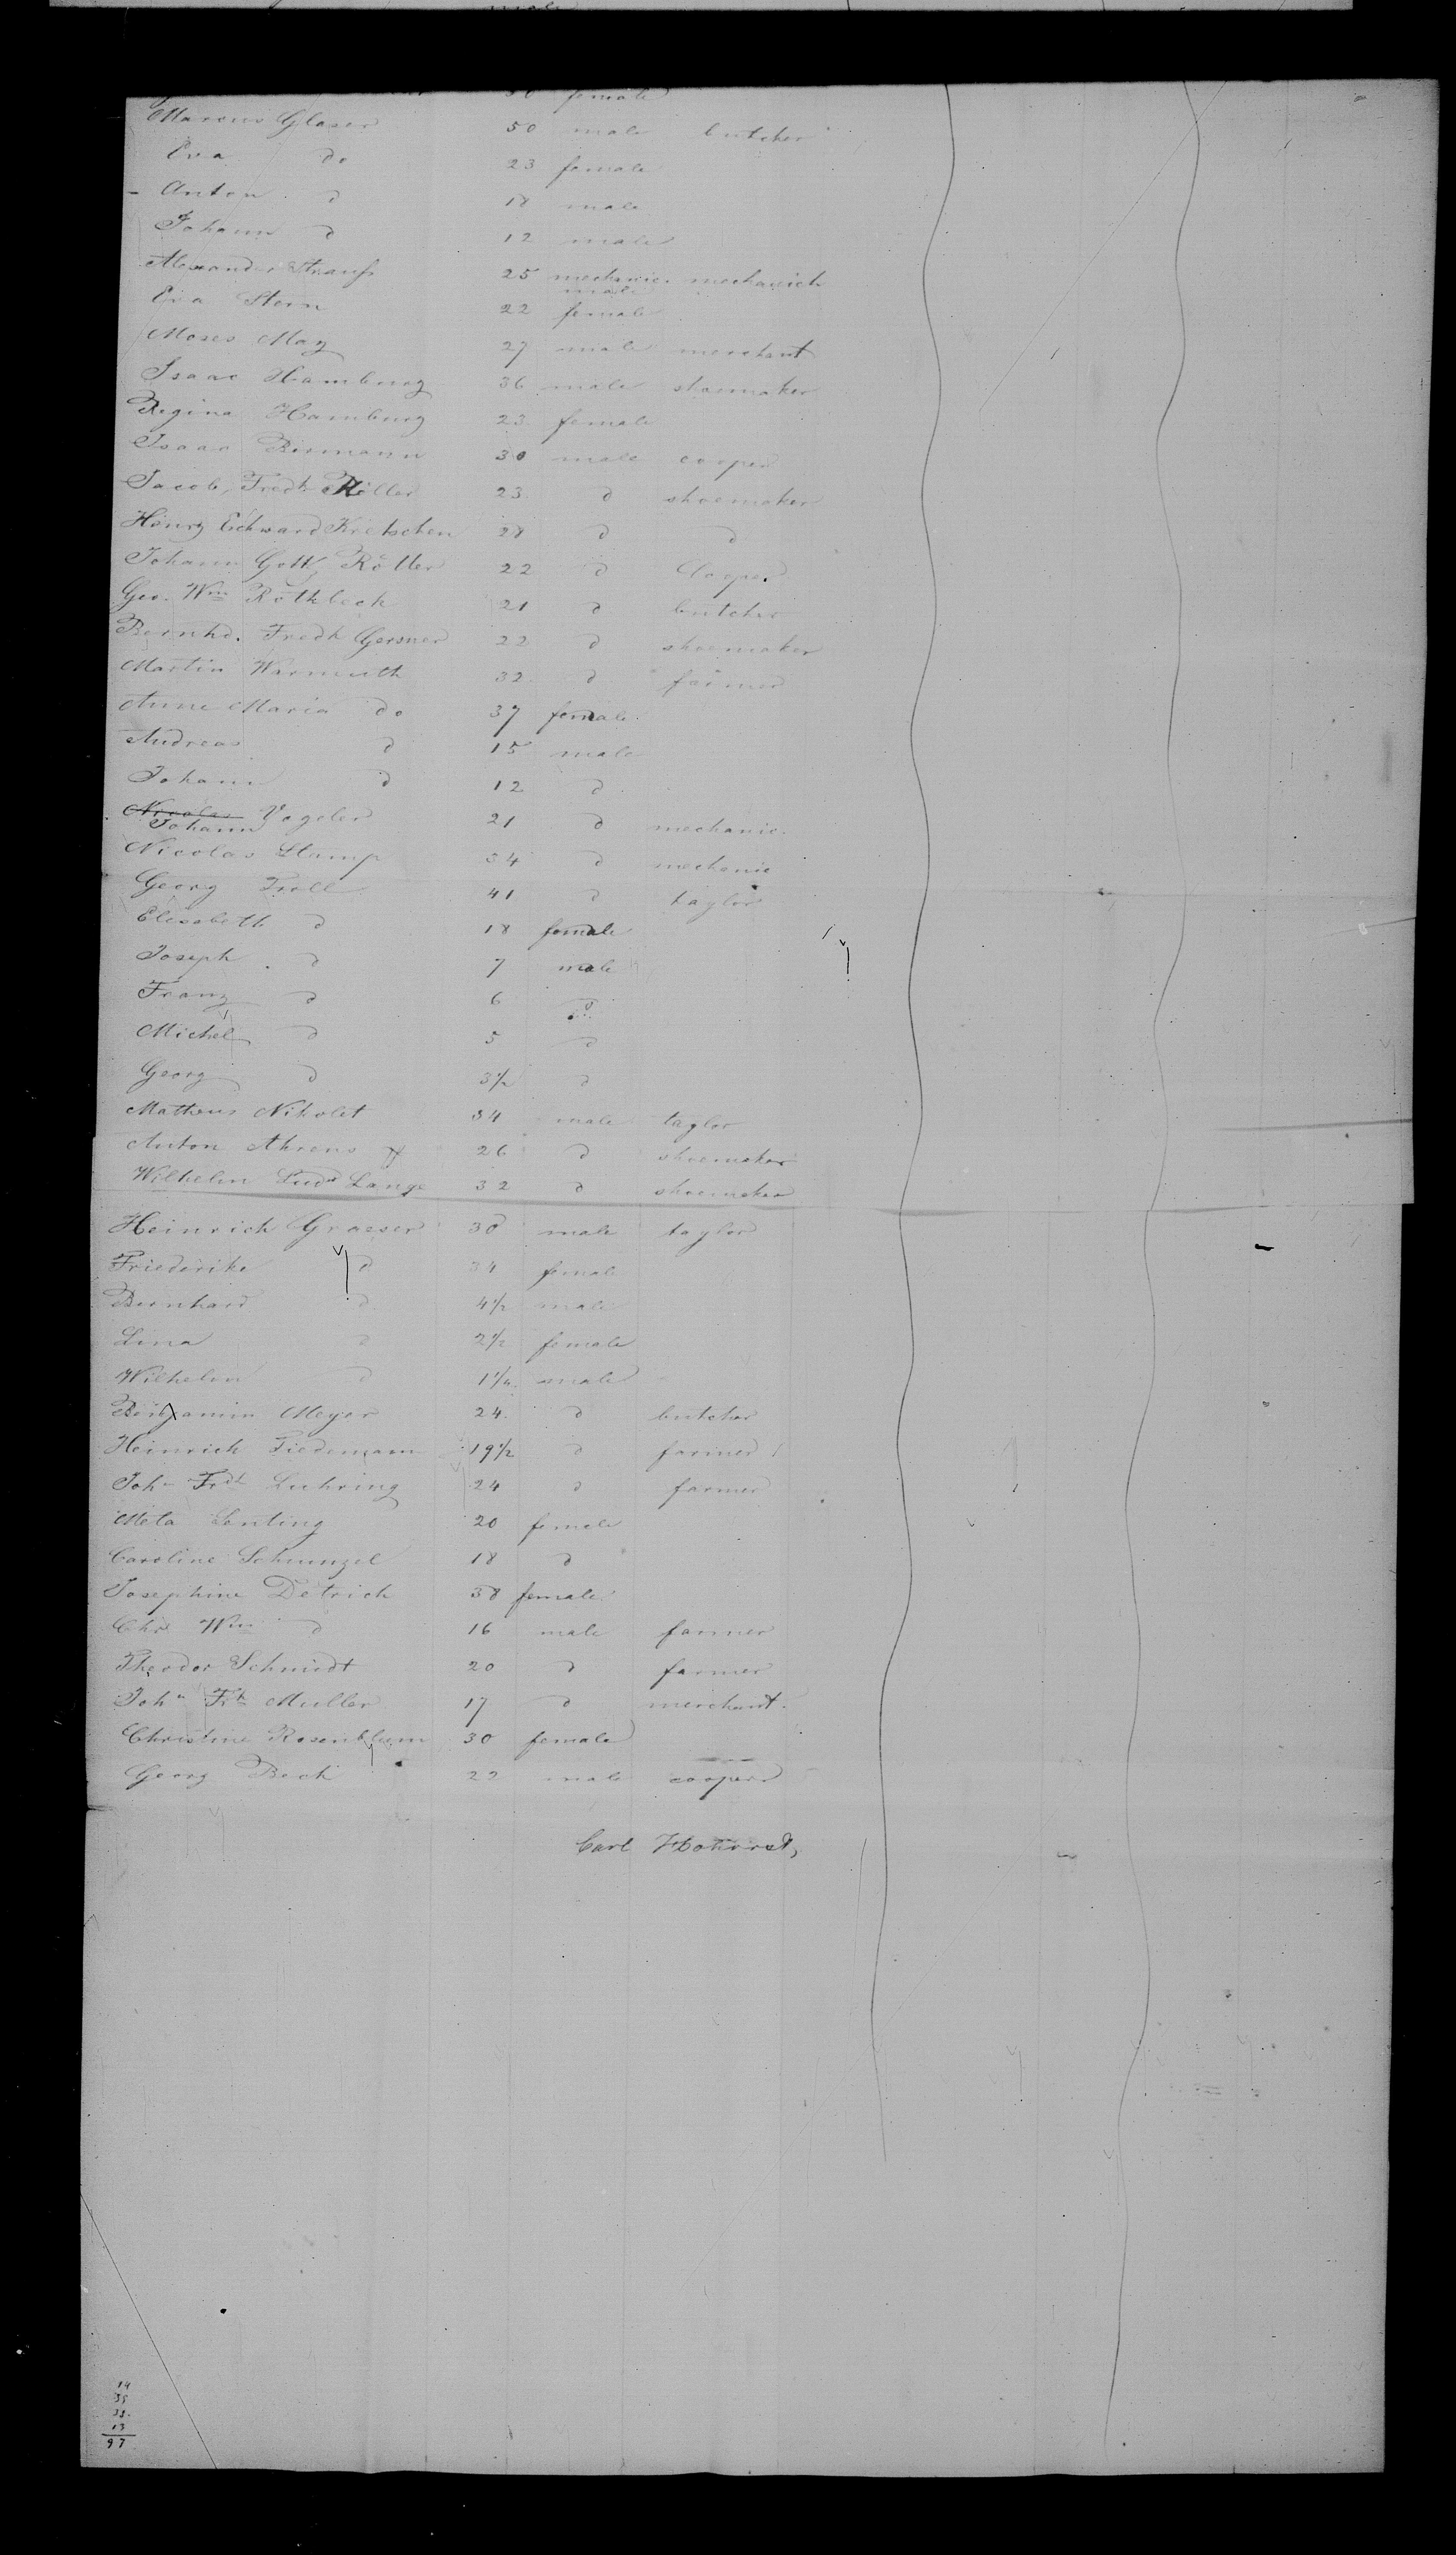 male
30 female
Marcus Glaser 50 male butcher
Eva do 23 female
Anton d 18 male
Johann d 12 male
Alexander Strauss 25 mechanic. mechanick
male
Eva Stern 22 female
Moses May 27 male merchant
Isaac Hamburg 36 male shoemaker
Regina Hamburg 23 female
Isaac Biermann 30 male cooper
Jacob Fredk Röller 23 d shoemaker
Henry Edward Kretschen 28 d d
Johann Gottf Röller 22 d Cooper
Geo. Wm Röthbeck 21 d butcher
Bernhd. Fredk Gersner 22 d shoemaker
Martin Warmuth 32 d farmer
Anne Maria do 37 female
Andreas d 15 male
Johann d 12 d
Nicolas Vogeler 21 d mechanic.
Johann
Nicolas Stamp 34 d mechanic
Georg Troll 41 d taylor
Elisabeth d 18 female
Joseph d 7 male
Franz d 6 d
Michel d 5 d
Georg d 3 1/2 d
Matheus Nikolet 34 male taylor
Anton Ahrens 26 d shoemaker
Wilhelm Ludw Lange 32 d shoemaker
Heinrich Graeser 30 male taylor
Friederike d 34 female
Bernhard d 4 1/2 male
Lina d 2 1/2 female
Wilhelm d 1 1/4 male
Benjamin Meyer 24 d butcher
Heinrich Tiedemann 19 1/2 d farmer
Joh Fdk Luhring 24 d farmer
Meta Lenting 20 female
Caroline Schunzel 18 d
Josephine Detrich 38 female
Chr Wm d 16 male farmer
Theodor Schmidt 20 d farmer
John Fk Muller 17 d merchant.
Christine Rosenblum 30 female
Georg Beck 22 male cooper
Carl
14
35
35
13
97